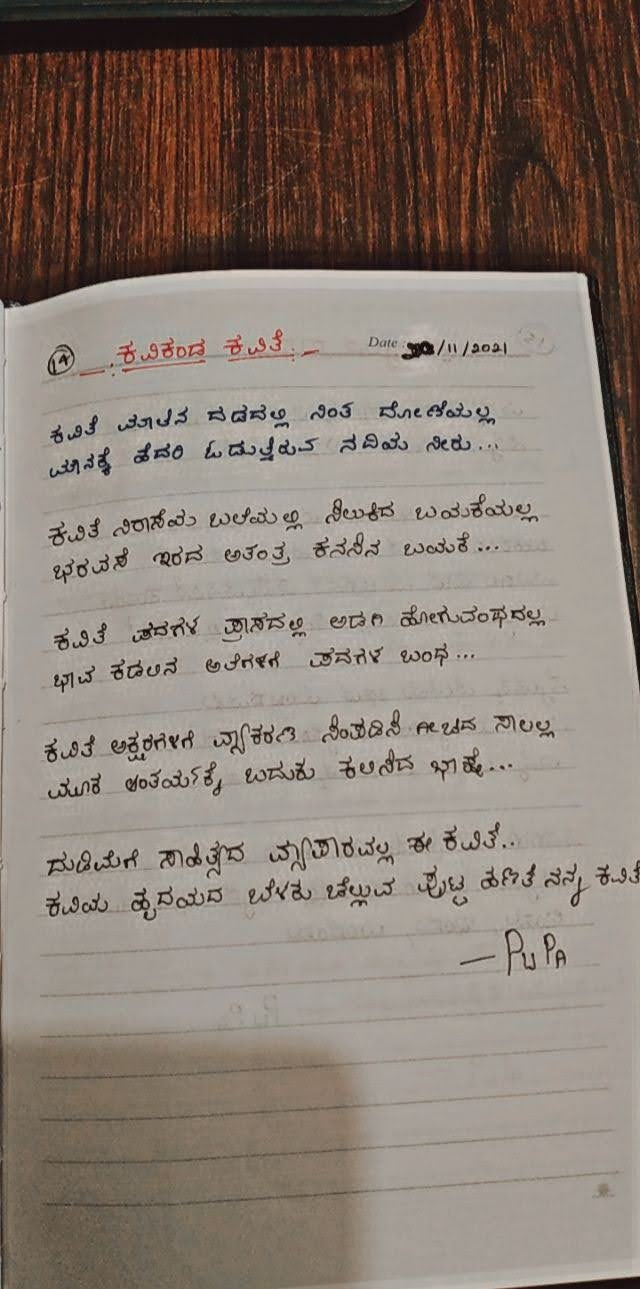 14 ಕವಿಕಂಡ ಕವಿತೆ Date: /11/2021
ಕವಿತೆ ಮಾತಿನ ದಡದಲ್ಲಿ ನಿಂತ ದೋಣಿಯಲ್ಲ
ಮೌನಕ್ಕೆ ಹೆದರಿ ಓಡುತ್ತಿರುವ ನದಿಯ ನೀರು...
ಕವಿತೆ ನಿರಾಸೆಯ ಬಲೆಯಲ್ಲಿ ಸಿಲುಕಿದ ಬಯಕೆಯಲ್ಲ
ಭರವಸೆ ಇರದ ಅತಂತ್ರ ಕನಸಿನ ಬಯಕೆ...
ಕವಿತೆ ಪದಗಳ ಪ್ರಾಸದಲ್ಲಿ ಅಡಗಿ ಹೋಗುವಂಥದಲ್ಲ
ಭಾವ ಕಡಲಿನ ಅಲೆಗಳಿಗೆ ಪದಗಳ ಬಂಧ...
ಕವಿತೆ ಅಕ್ಷರಗಳಿಗೆ ವ್ಯಾಕರಣ ಗೀಚಿದ ಸಾಲಲ್ಲ
ಮೂಕ ಅಂತರ್ಯಕ್ಕೆ ಬದುಕು ಕಲಿಸಿದ ಭಾಷೆ...
ದುಡಿಮೆಗೆ ಸಾಹಿತ್ಯದ ವ್ಯಾಪಾರವಲ್ಲ ಈ ಕವಿತೆ..
ಕವಿಯ ಹೃದಯದ ಬೆಳಕು ಚೆಲ್ಲುವ ಪುಟ್ಟ ಹಣತೆ ನನ್ನ ಕವಿತೆ
— PUPA